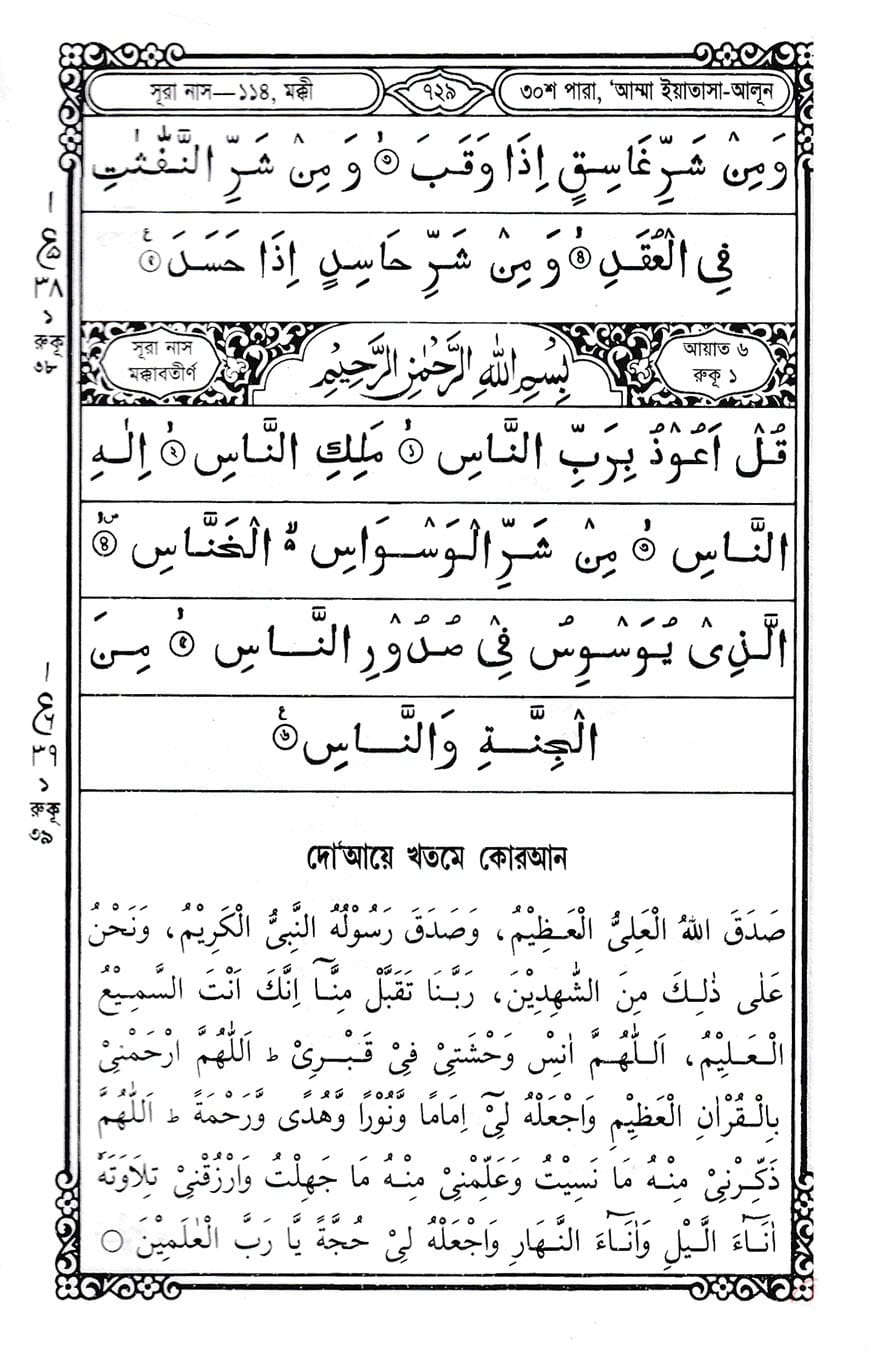 সূরা নাস—১১৪, মক্কী
৭২৯
৩০শ পারা, 'আম্মা ইয়াতাসা-আলূন
وَمِنْ شَرِّ غَاسِقٍ اِذَا وَقَبَ ۝٣ وَمِنْ شَرِّ النَّفّٰثٰتِ
فِى الْعُقَدِ ۝٤ وَمِنْ شَرِّ حَاسِدٍ اِذَا حَسَدَ ۝٥
١
ع ৫
٣٨
১
রুকূ
৩৮
সূরা নাস
মক্কাবতীর্ণ
بِسْمِ اللّٰهِ الرَّحْمٰنِ الرَّحِيْمِ
আয়াত ৬
রুকূ ১
قُلْ اَعُوْذُ بِرَبِّ النَّاسِ ۝١ مَلِكِ النَّاسِ ۝٢ اِلٰهِ
النَّاسِ ۝٣ مِنْ شَرِّ الْوَسْوَاسِ ۙ الْخَنَّاسِ ۝٤
الَّذِىْ يُوَسْوِسُ فِىْ صُدُوْرِ النَّاسِ ۝٥ مِنَ
الْجِنَّةِ وَالنَّاسِ ۝٦
١
ع ৬
٣٩
১
রুকূ
৩৯
দো'আয়ে খতমে কোরআন
صَدَقَ اللّٰهُ الْعَلِىُّ الْعَظِيْمُ، وَصَدَقَ رَسُوْلُهُ النَّبِىُّ الْكَرِيْمُ، وَنَحْنُ
عَلٰى ذٰلِكَ مِنَ الشّٰهِدِيْنَ، رَبَّنَا تَقَبَّلْ مِنَّآ اِنَّكَ اَنْتَ السَّمِيْعُ
الْعَلِيْمُ، اَللّٰهُمَّ اٰنِسْ وَحْشَتِىْ فِىْ قَبْرِىْ ط اَللّٰهُمَّ ارْحَمْنِىْ
بِالْقُرْاٰنِ الْعَظِيْمِ وَاجْعَلْهُ لِىْٓ اِمَامًا وَّنُوْرًا وَّهُدًى وَّرَحْمَةً ط اَللّٰهُمَّ
ذَكِّرْنِىْ مِنْهُ مَا نَسِيْتُ وَعَلِّمْنِىْ مِنْهُ مَا جَهِلْتُ وَارْزُقْنِىْ تِلَاوَتَهٗ
اٰنَآءَ الَّيْلِ وَاٰنَآءَ النَّهَارِ وَاجْعَلْهُ لِىْ حُجَّةً يَّا رَبَّ الْعٰلَمِيْنَ ○